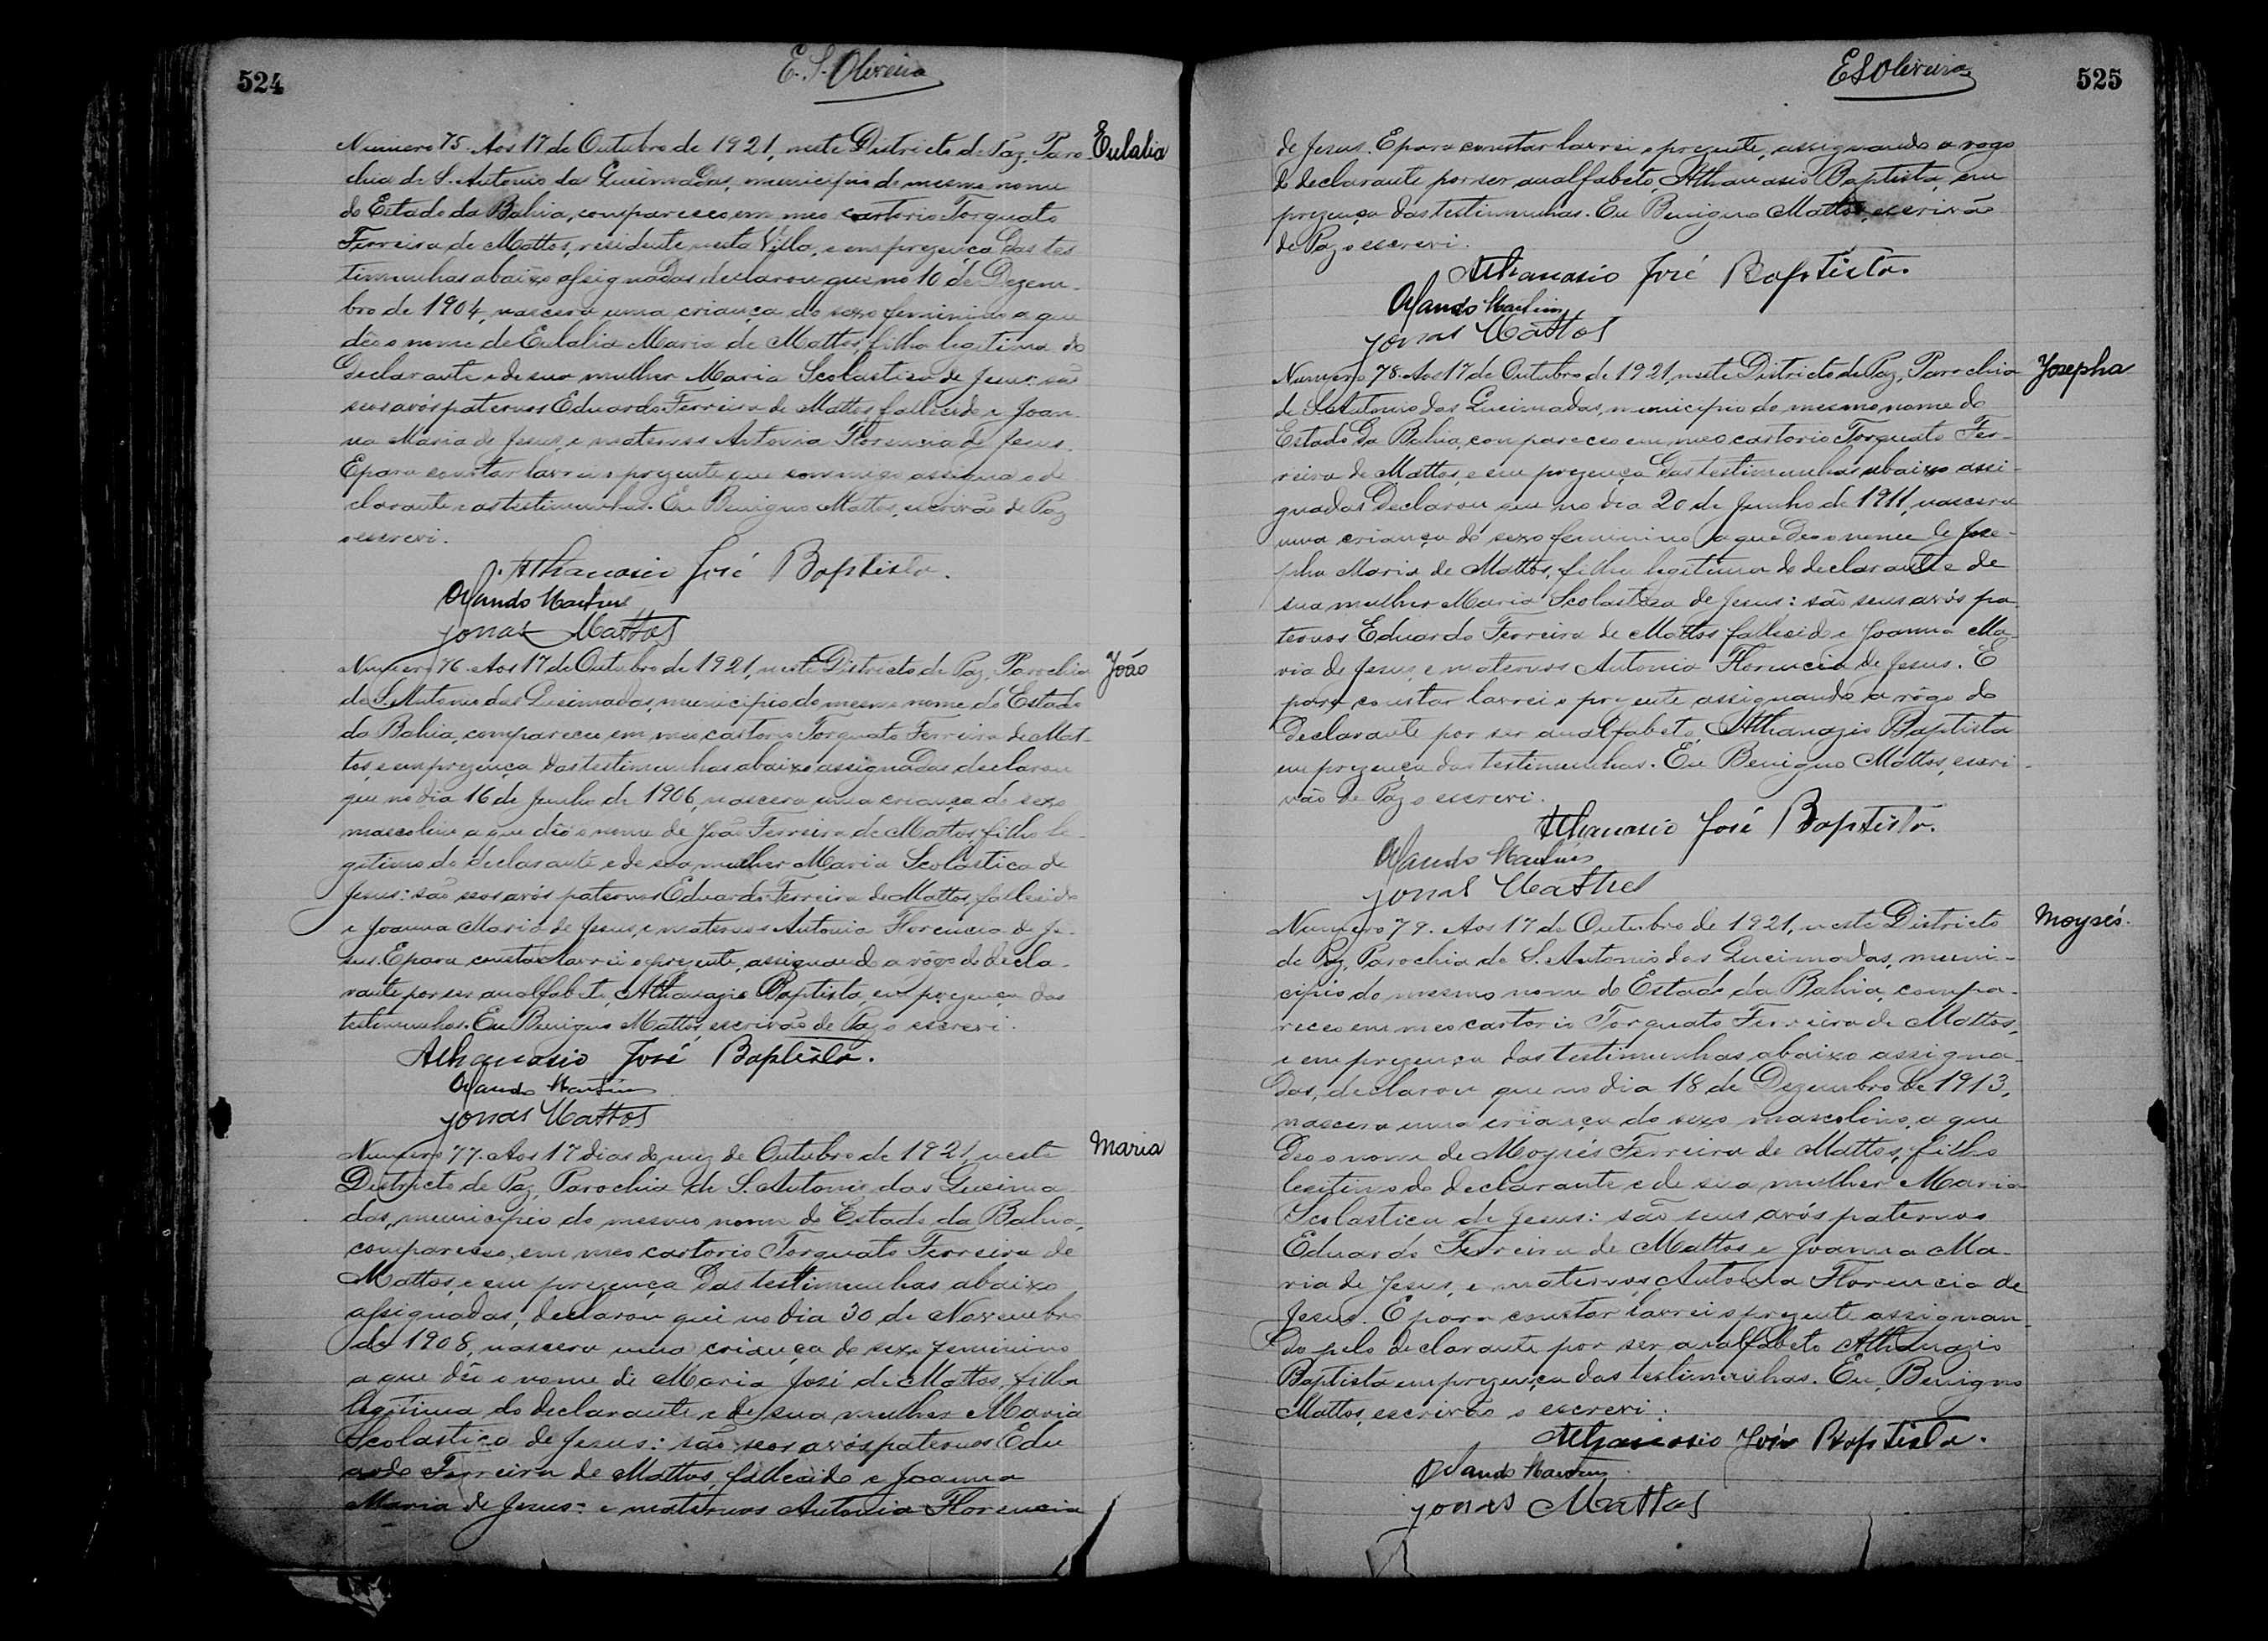 524
E. S. Oliveira
Numero 75. Aos 17 de Outubro de 1921, neste Districto de Paz, Paro-
Eulalia
chia de S. Antonio das Queimadas, municipio do mesmo nome
do Estado da Bahia, compareceo em meo cartorio Torquato
Ferreira de Mattos, residente nesta Villa, e em prezença das tes
timunhas abaixo assignadas declarou que no 10 de Dezem-
bro de 1904, nascera uma criança do sexo feminino a que
dêo o nome de Eulalia Maria de Mattos, filha legitima do
declarante e de sua mulher Maria Scolastica de Jesus: são
seos avós paternos Eduardo Ferreira de Mattos, fallecido e Joan-
na Maria de Jesus, e maternos Antonia Florencia de Jesus.
E para constar lavrei o prezente que commigo assigna o de
clarante e as testimunhas. Eu Benigno Mattos, escrivão de Paz
o escrevi.
Athanasio José Baptista.
Orlando Martins
Jonas Mattos
Numero 76. Aos 17 de Outubro de 1921, neste Districto de Paz, Parochia
João
de S. Antonio das Queimadas, municipio do mesmo nome do Estado
da Bahia, compareceu em meu cartorio Torquato Ferreira de Mat-
tos, e em prezença das testimunhas abaixo assignadas, declarou
que no dia 16 de Junho de 1906, nascera uma criança do sexo
masculino a que dêo o nome de João Ferreira de Mattos, filho le-
gitimo do declarante e de sua mulher Maria Scolastica de
Jesus: são seos avós paternos Eduardo Ferreira de Mattos, fallecido
e Joanna Maria de Jesus, e maternos Antonia Florencia de Je-
sus. E para constar lavrei o prezente, assignando a rôgo do decla-
rante por ser analfabeto, Athanazio Baptista, em prezença das
testimunhas. Eu Benigno Mattos, escrivão de Paz o escrevi.
Athanasio José Baptista.
Orlando Martins
Jonas Mattos
Numero 77. Aos 17 dias do mez de Outubro de 1921, neste
Maria
Districto de Paz, Parochia de S. Antonio das Queima
das, municipio do mesmo nome do Estado da Bahia,
compareceo, em meo cartorio Torquato Ferreira de
Mattos, e em prezença das testimunhas abaixo
assignadas, declarou que no dia 30 de Novembro
de 1908, nascera uma criança do sexo feminino
a que dêo o nome de Maria José de Mattos, filha
legitima do declarante e de sua mulher Maria
Scolastica de Jesus: são seos avós paternos Edu
ardo Ferreira de Mattos, fallecido e Joanna
Maria de Jesus: e maternos Antonia Florencia
525
E S Oliveira
de Jesus. E para constar lavrei o prezente, assignando a rogo
do declarante por ser analfabeto, Athanasio Baptista, em
prezença das testimunhas. Eu Benigno Mattos, escrivão
de Paz o escrevi.
Athanasio José Baptista.
Orlando Martins
Jonas Mattos
Numero 78. Aos 17 de Outubro de 1921, neste Districto de Paz, Parochia
Josepha
de S. Antonio das Queimadas, municipio do mesmo nome do
Estado da Bahia, compareceo em meo cartorio Torquato Fer-
reira de Mattos, e em prezença das testimunhas abaixo assi-
gnadas declarou que no dia 20 de Junho de 1911, nascera
uma criança do sexo feminino a que deo o nome de Jose-
pha Maria de Mattos, filha legitima do declarante e de
sua mulher Maria Scolastica de Jesus: são seus avós pa
ternos Eduardo Ferreira de Mattos fallecido e Joanna Ma-
ria de Jesus, e maternos Antonia Florencia de Jesus. E
para constar lavrei o prezente assignando a rôgo do
declarante por ser analfabeto, Athanazio Baptista
em prezença das testimunhas. Eu Benigno Mattos, escri-
vão de Paz o escrevi.
Athanasio José Baptista.
Orlando Martins
Jonas Mattos
Numero 79. Aos 17 de Outubro de 1921, neste Districto
Moysés.
de Paz, Parochia de S. Antonio das Queimadas, muni-
cipio do mesmo nome do Estado da Bahia, compa-
receo em meo cartorio Torquato Ferreira de Mattos,
e em prezença das testimunhas abaixo assigna-
das, declarou que no dia 18 de Dezembro de 1913,
nascera uma criança do sexo masculino, a que
deo o nome de Moysés Ferreira de Mattos, filho
legitimo do declarante e de sua mulher Maria
Scolastica de Jesus: são seus avós paternos
Eduardo Ferreira de Mattos e Joanna Ma-
ria de Jesus, e maternos, Antonia Florencia de
Jesus. E para constar lavrei o prezente assignan-
do pelo declarante por ser analfabeto Athanazio
Baptista em prezença das testimunhas. Eu, Benigno
Mattos, escrivão o escrevi.
Athanasio José Baptista.
Orlando Martins.
Jonas Mattos